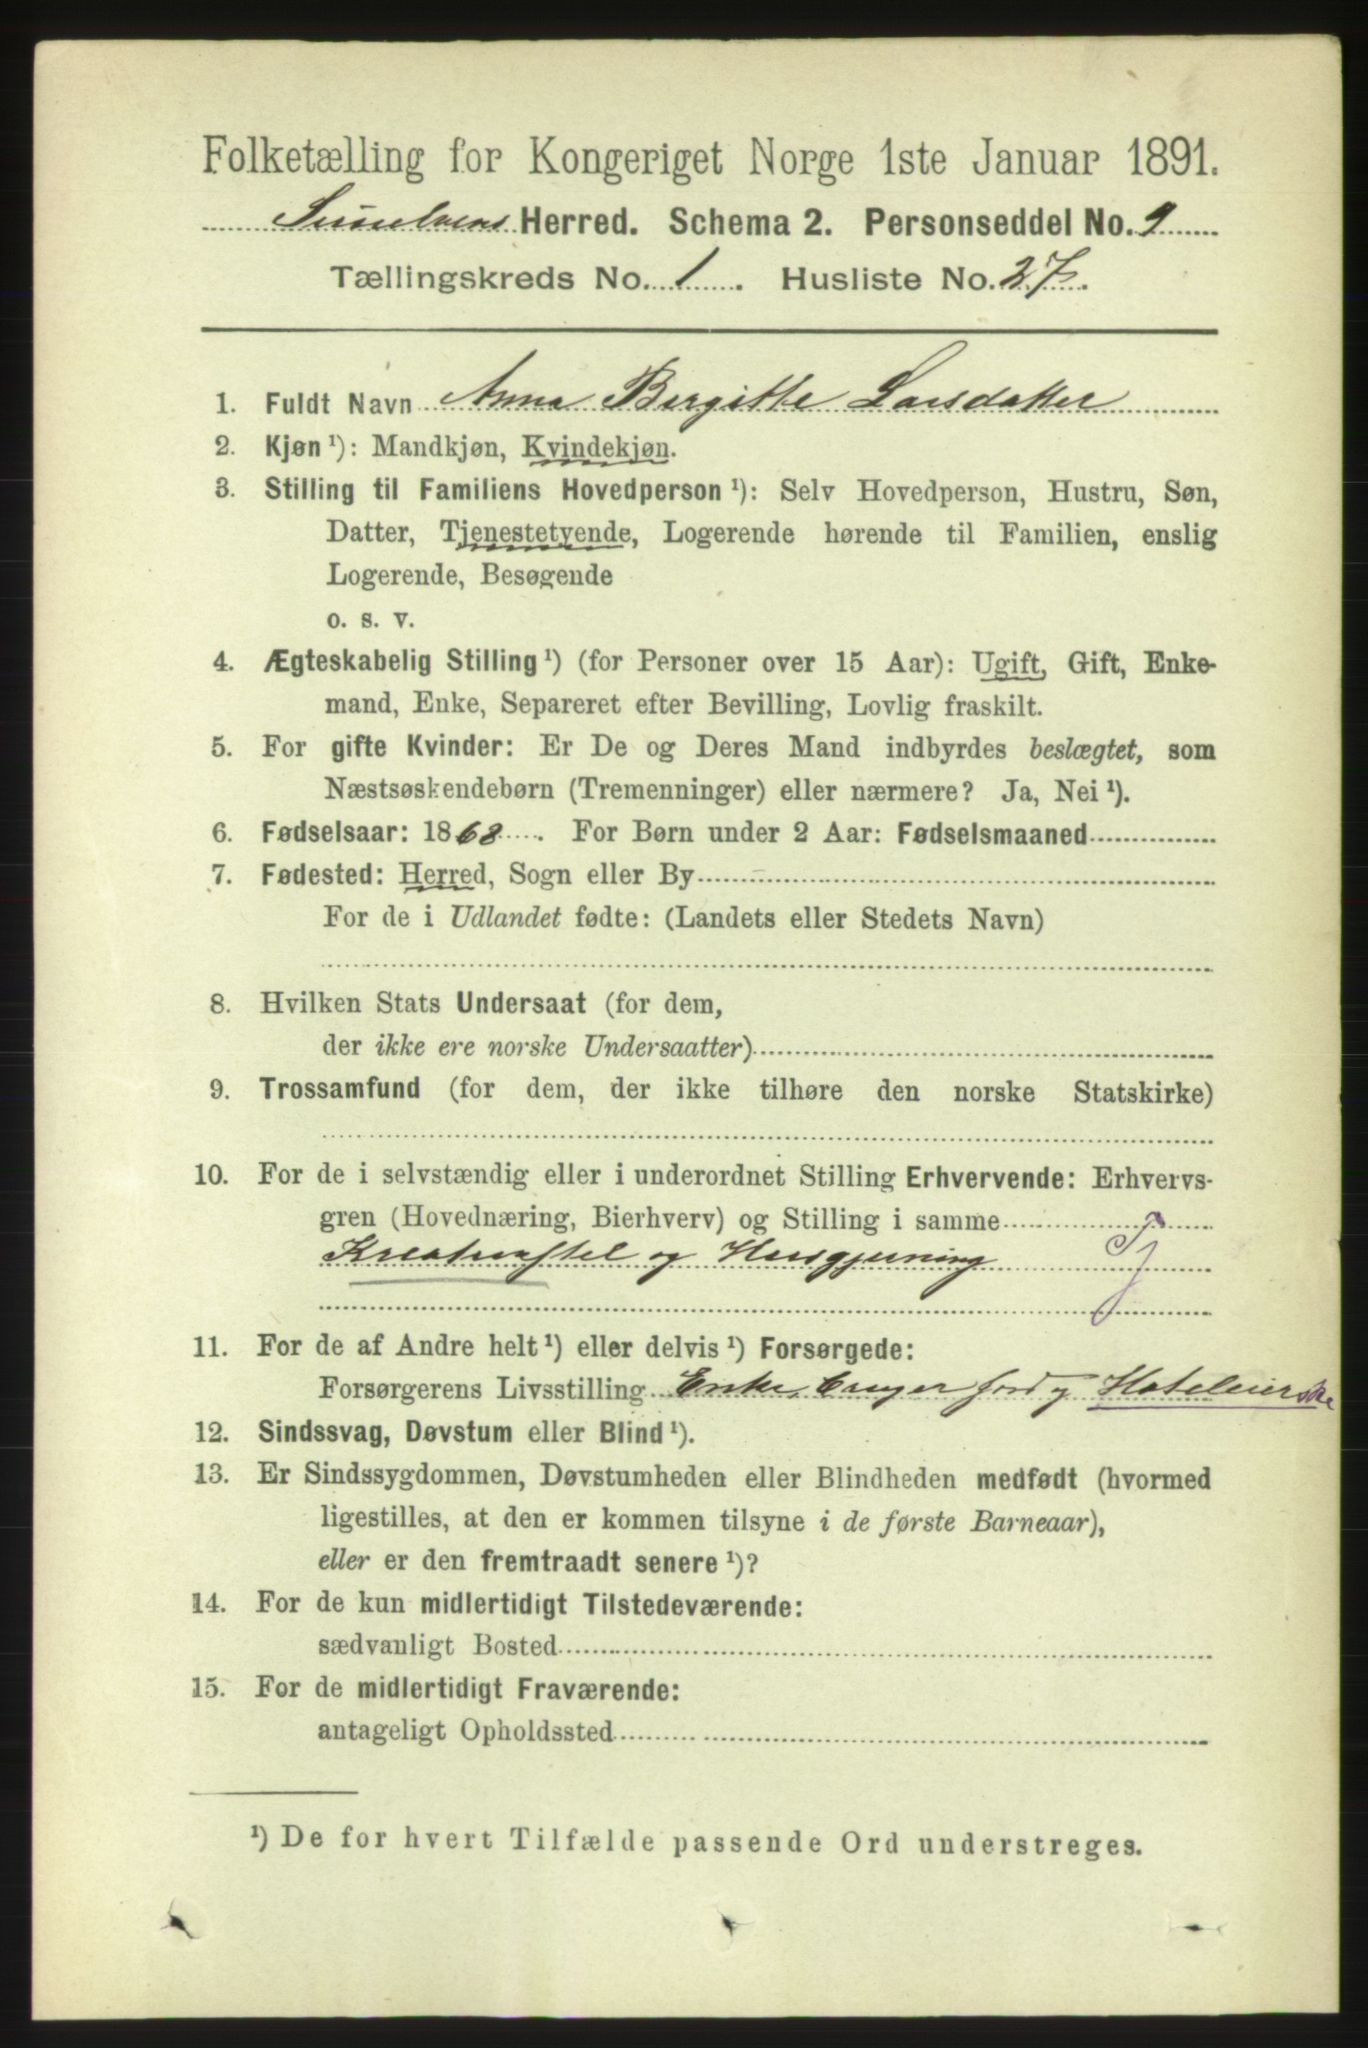 Folketælling for Kongeriget Norge 1ste Januar 1891.
Sunelvens Herred. Schema 2. Personseddel No. 9
Tællingskreds No. 1. Husliste No. 27.
1. Fuldt Navn Anna Bergitte Larsdatter
2. Kjøn¹): Mandkjøn, Kvindekjøn.
3. Stilling til Familiens Hovedperson¹): Selv Hovedperson, Hustru, Søn,
Datter, Tjenestetyende, Logerende hørende til Familien, enslig
Logerende, Besøgende
o. s. v.
4. Ægteskabelig Stilling¹) (for Personer over 15 Aar): Ugift, Gift, Enke-
mand, Enke, Separeret efter Bevilling, Lovlig fraskilt.
5. For gifte Kvinder: Er De og Deres Mand indbyrdes beslægtet, som
Næstsøskendebørn (Tremenninger) eller nærmere? Ja, Nei¹).
6. Fødselsaar: 1868. For Børn under 2 Aar: Fødselsmaaned
7. Fødested: Herred, Sogn eller By
For de i Udlandet fødte: (Landets eller Stedets Navn)
8. Hvilken Stats Undersaat (for dem,
der ikke ere norske Undersaatter)
9. Trossamfund (for dem, der ikke tilhøre den norske Statskirke)
10. For de i selvstændig eller i underordnet Stilling Erhvervende: Erhvervs-
gren (Hovednæring, Bierhverv) og Stilling i samme
Kreaturstel og Husgjerning
11. For de af Andre helt¹) eller delvis¹) Forsørgede:
Forsørgerens Livsstilling Enke, bruger jord og Hoteleierske
12. Sindssvag, Døvstum eller Blind¹).
13. Er Sindssygdommen, Døvstumheden eller Blindheden medfødt (hvormed
ligestilles, at den er kommen tilsyne i de første Barneaar),
eller er den fremtraadt senere¹)?
14. For de kun midlertidigt Tilstedeværende:
sædvanligt Bosted
15. For de midlertidigt Fraværende:
antageligt Opholdssted
¹) De for hvert Tilfælde passende Ord understreges.